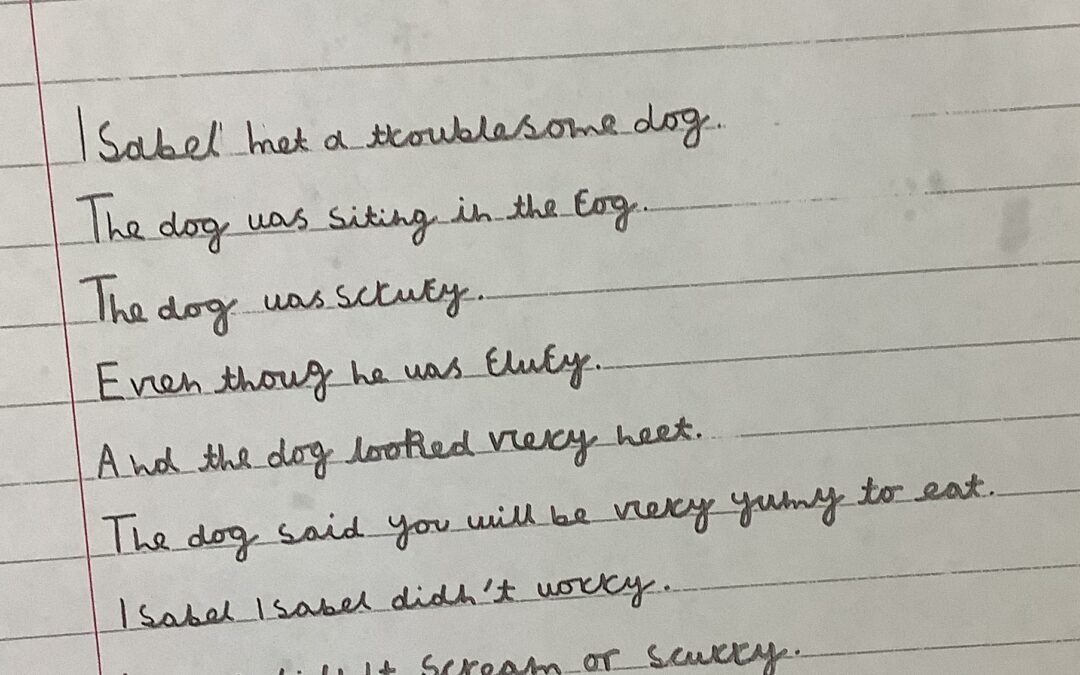 Isabel met a troublesome dog.
The dog was siting in the fog.
The dog was scrufy.
Even thoug he was flufy.
And the dog looked very neet.
The dog said you will be very yumy to eat.
Isabel Isabel didn't worry.
scream or scurry.